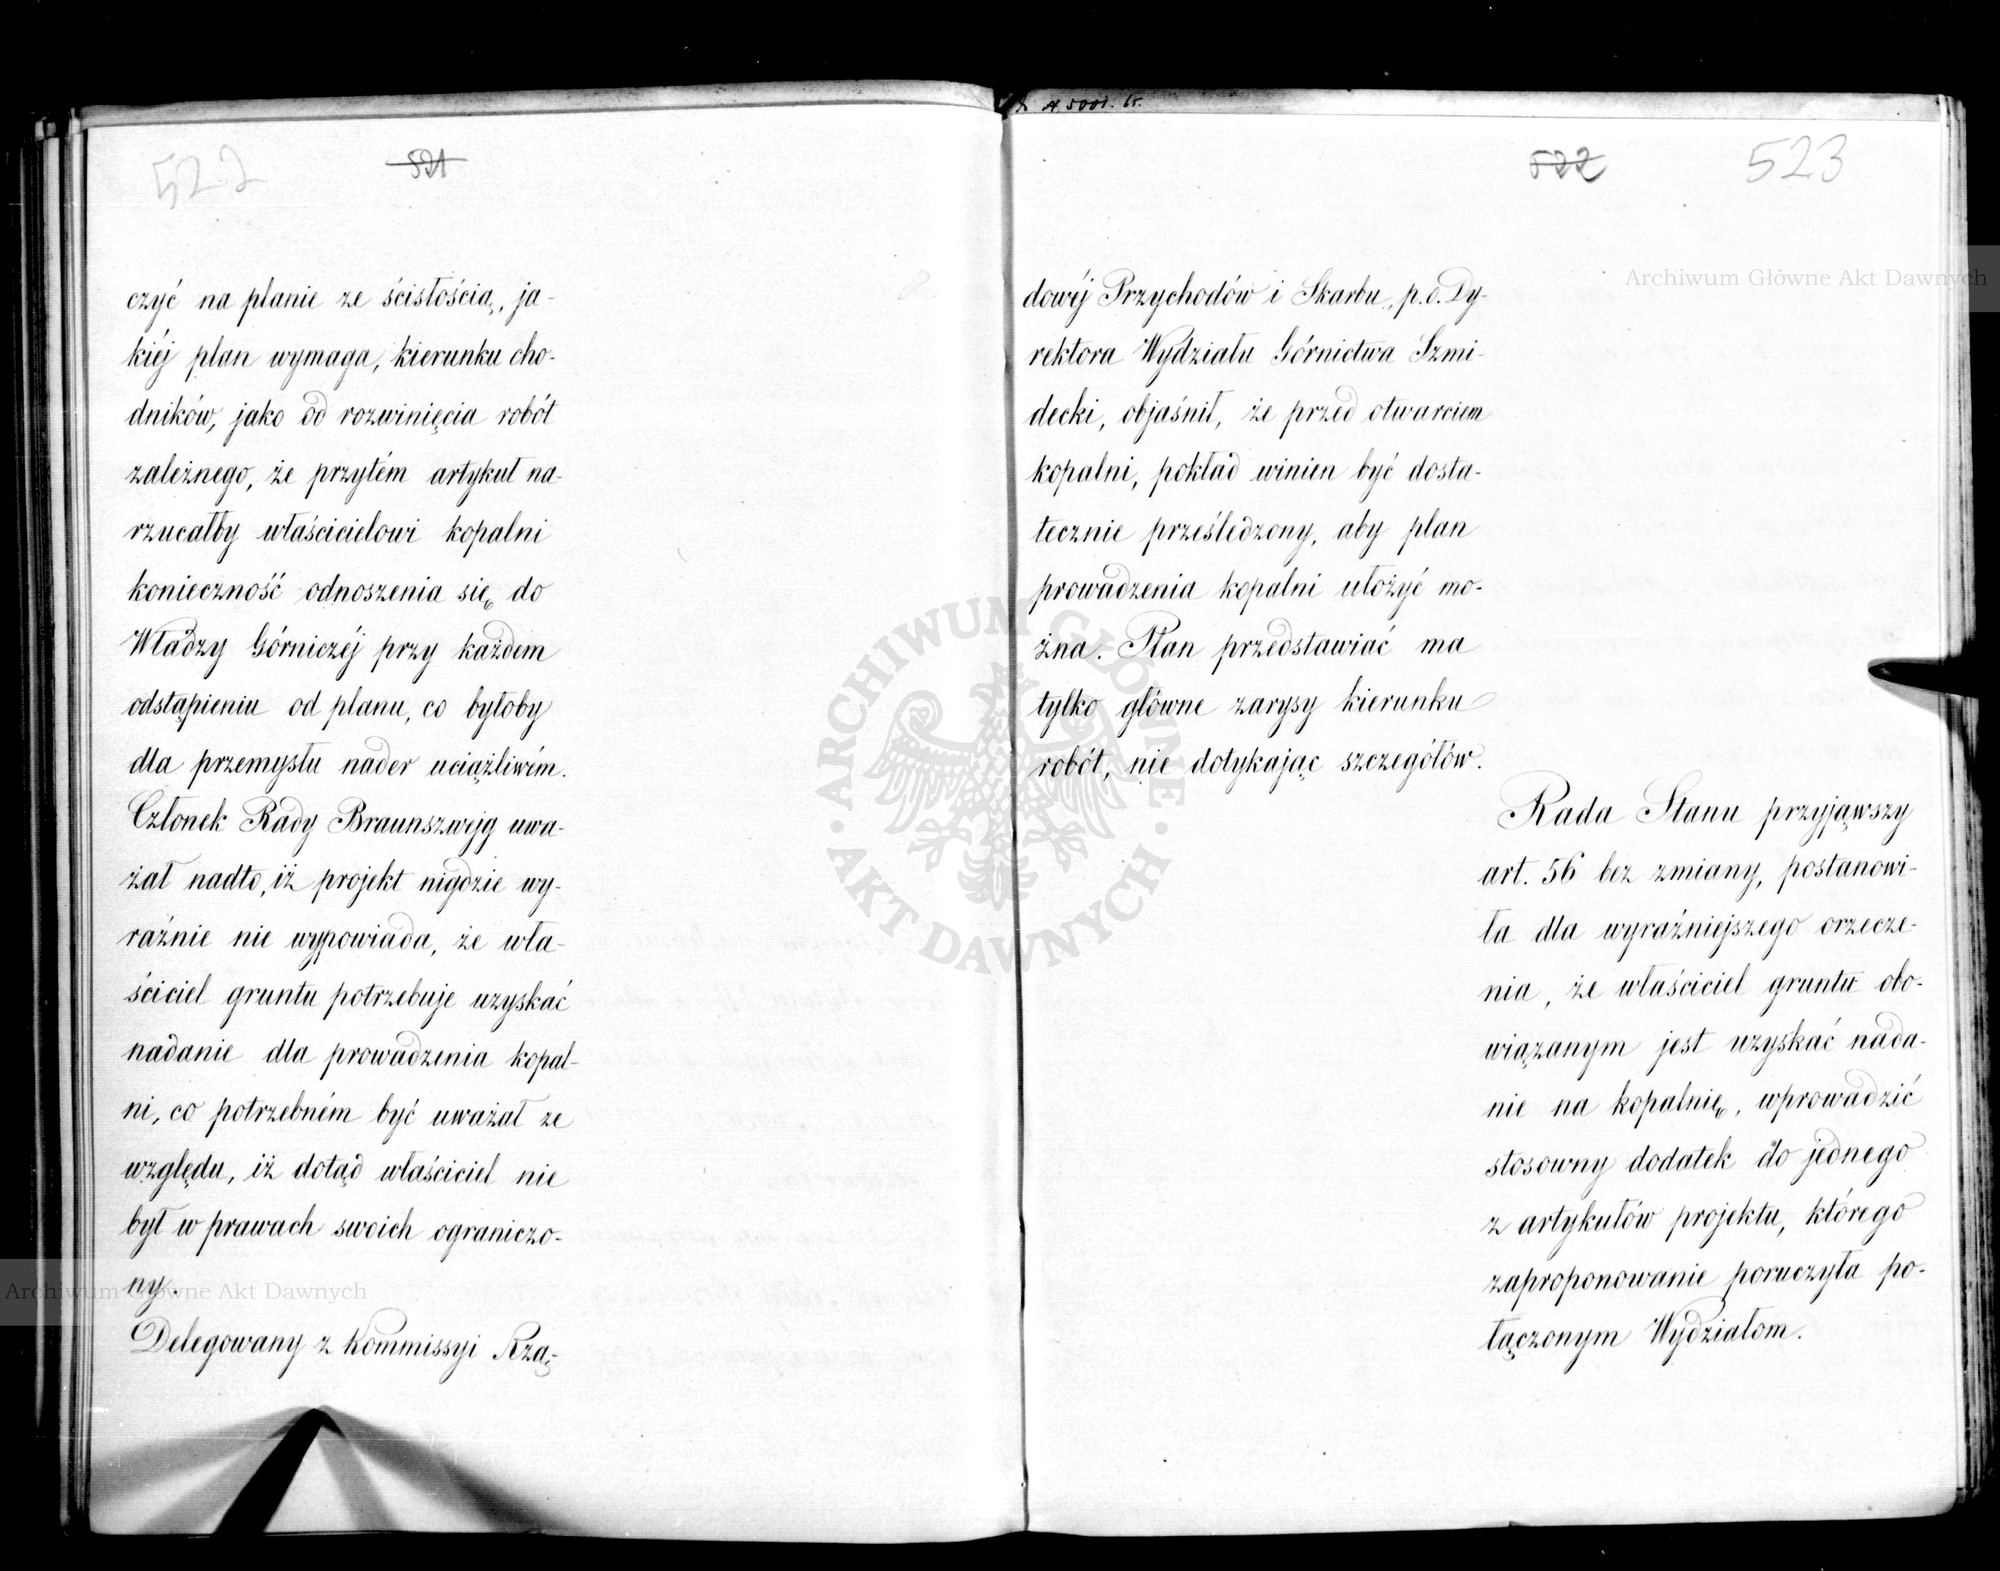 522
521
czyć na planie ze ścisłością, ja-
kiéj plan wymaga, kierunku cho-
dników, jako od rozwinięcia robót
zależnego, że przytém artykuł na-
rzucałby właścicielowi kopalni
konieczność odnoszenia się do
Władzy Górniczéj przy każdem
odstąpieniu od planu, co byłoby
dla przemysłu nader uciążliwém.
Członek Rady Braunszwejg uwa-
żał nadto, iż projekt nigdzie wy-
raźnie nie wypowiada, że wła-
ściciel gruntu potrzebuje uzyskać
nadanie dla prowadzenia kopal-
ni, co potrzebném być uważał ze
względu, iż dotąd właściciel nie
był w prawach swoich ograniczo-
ny.
Delegowany z Kommissyi Rzą-
522
523
dowéj Przychodów i Skarbu, p.o. Dy-
rektora Wydziału Górnictwa Szmi-
decki, objaśnił, że przed otwarciem
kopalni, pokład winien być dosta-
tecznie prześledzony, aby plan
prowadzenia kopalni ułożyć mo-
żna. Plan przedstawiać ma
tylko główne zarysy kierunku
robót, nie dotykając szczegółów.
Rada Stanu przyjąwszy
art. 56 bez zmiany, postanowi-
ła dla wyraźniejszego orzecze-
nia, że właściciel gruntu obo-
wiązanym jest uzyskać nada-
nie na kopalnię, wprowadzić
stosowny dodatek do jednego
z artykułów projektu, którego
zaproponowanie poruczyła po-
łączonym Wydziałom.
Archiwum Główne Akt Dawnych
ARCHIWUM GŁÓWNE
AKT DAWNYCH
Archiwum Główne Akt Dawnych